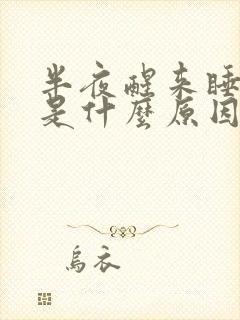 半夜醒来睡
是什麼原因
烏衣